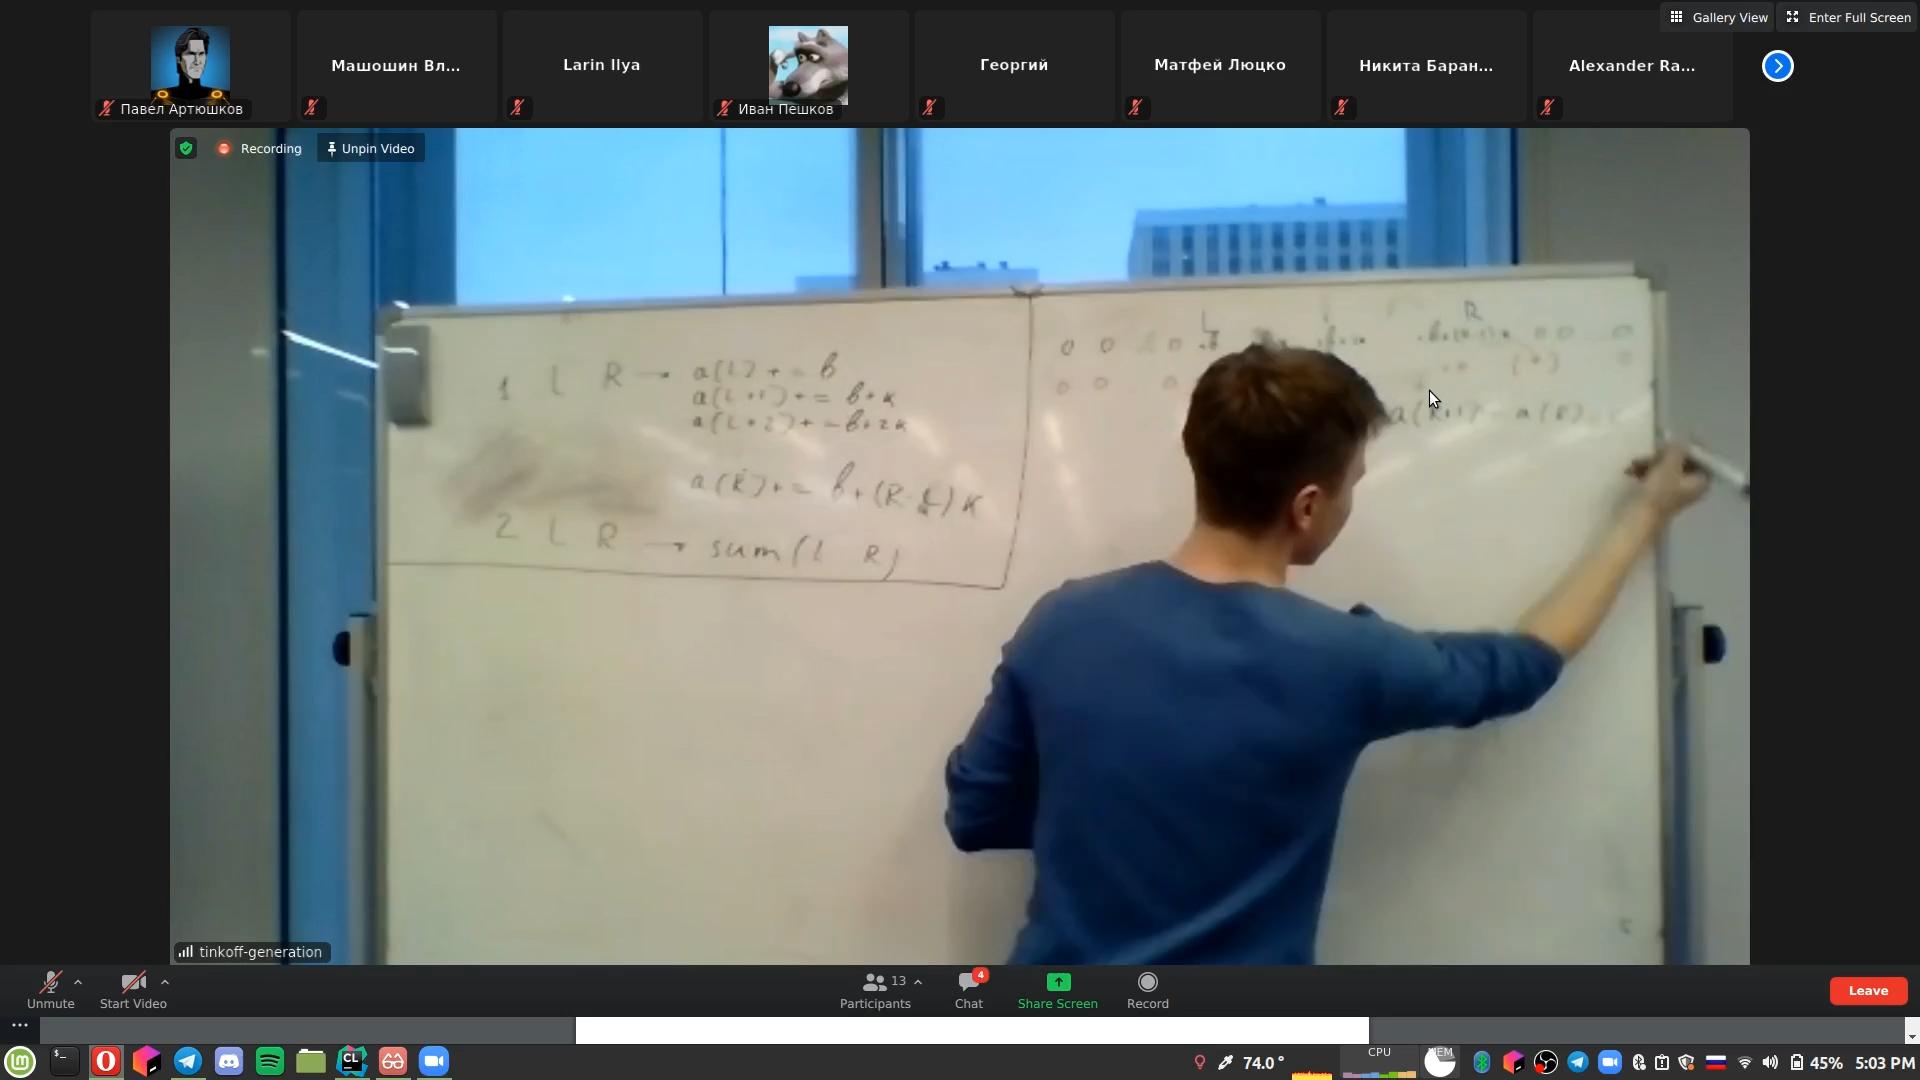 Gallery View
Enter Full Screen
Павел Артюшков
Машошин Вл...
Larin Ilya
Иван Пешков
Георгий
Матфей Люцко
Никита Баран...
Alexander Ra...
Recording
Unpin Video
1 L R → a(L) += b
a(L+1) += b+k
a(L+2) += b+2k
a(R) += b+(R-L)k
2 L R → sum(L R)
L R
0 0 0
0 0 0
a(R+1) - a(R)
tinkoff-generation
Unmute
Start Video
Participants 13
Chat 4
Share Screen
Record
Leave
CL
74.0°
CPU
MEM
45%
5:03 PM